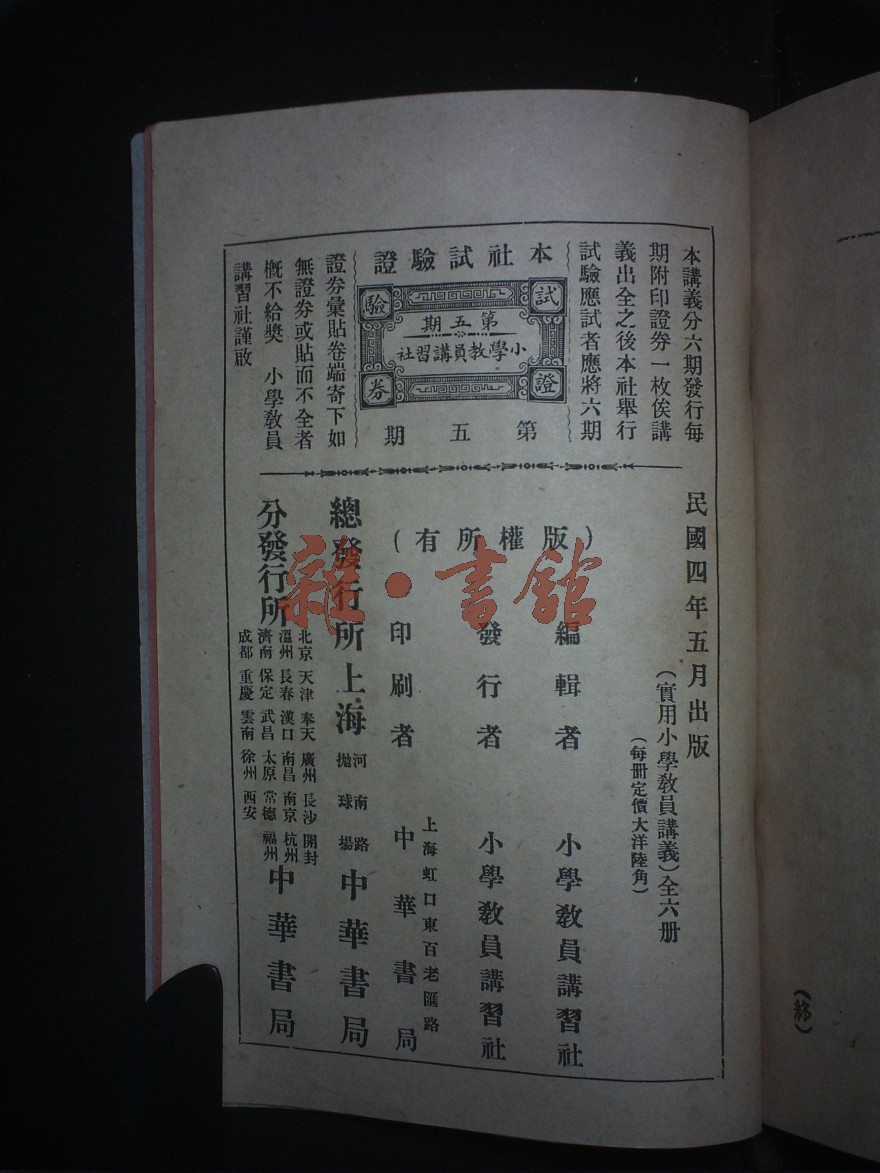 本講義分六期發行每
期附印證券一枚俟講
義出全之後本社舉行
試驗應試者應將六期
本社試驗證
試驗證券
第五期
小學教員講習社
第五期
證券彙貼卷端寄下如
無證券或貼而不全者
概不給獎 小學教員
講習社謹啟
民國四年五月出版
(實用小學教員講義)全六册
(每冊定價大洋陸角)
(版權所有)
編輯者 小學教員講習社
發行者 小學教員講習社
印刷者 上海虹口東百老匯路 中華書局
總發行所上海 河南路拋球場 中華書局
分發行所
北京 天津 奉天 廣州 長沙 開封
溫州 長春 漢口 南昌 南京 杭州
濟南 保定 武昌 太原 常德 福州
成都 重慶 雲南 徐州 西安
中華書局
雜·書館
(終)